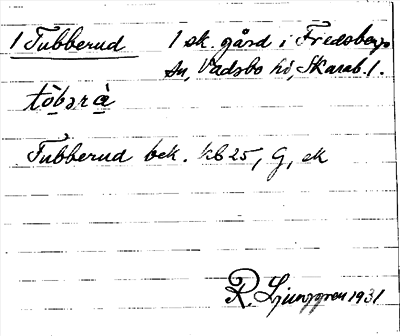 1 Tubberud 1 sk. gård i Fredsbergs
sn, Vadsbo hd, Skarab. l.
tö̀bərà
Tubberud bek. kb 25, G, ek
R. Ljunggren 1931